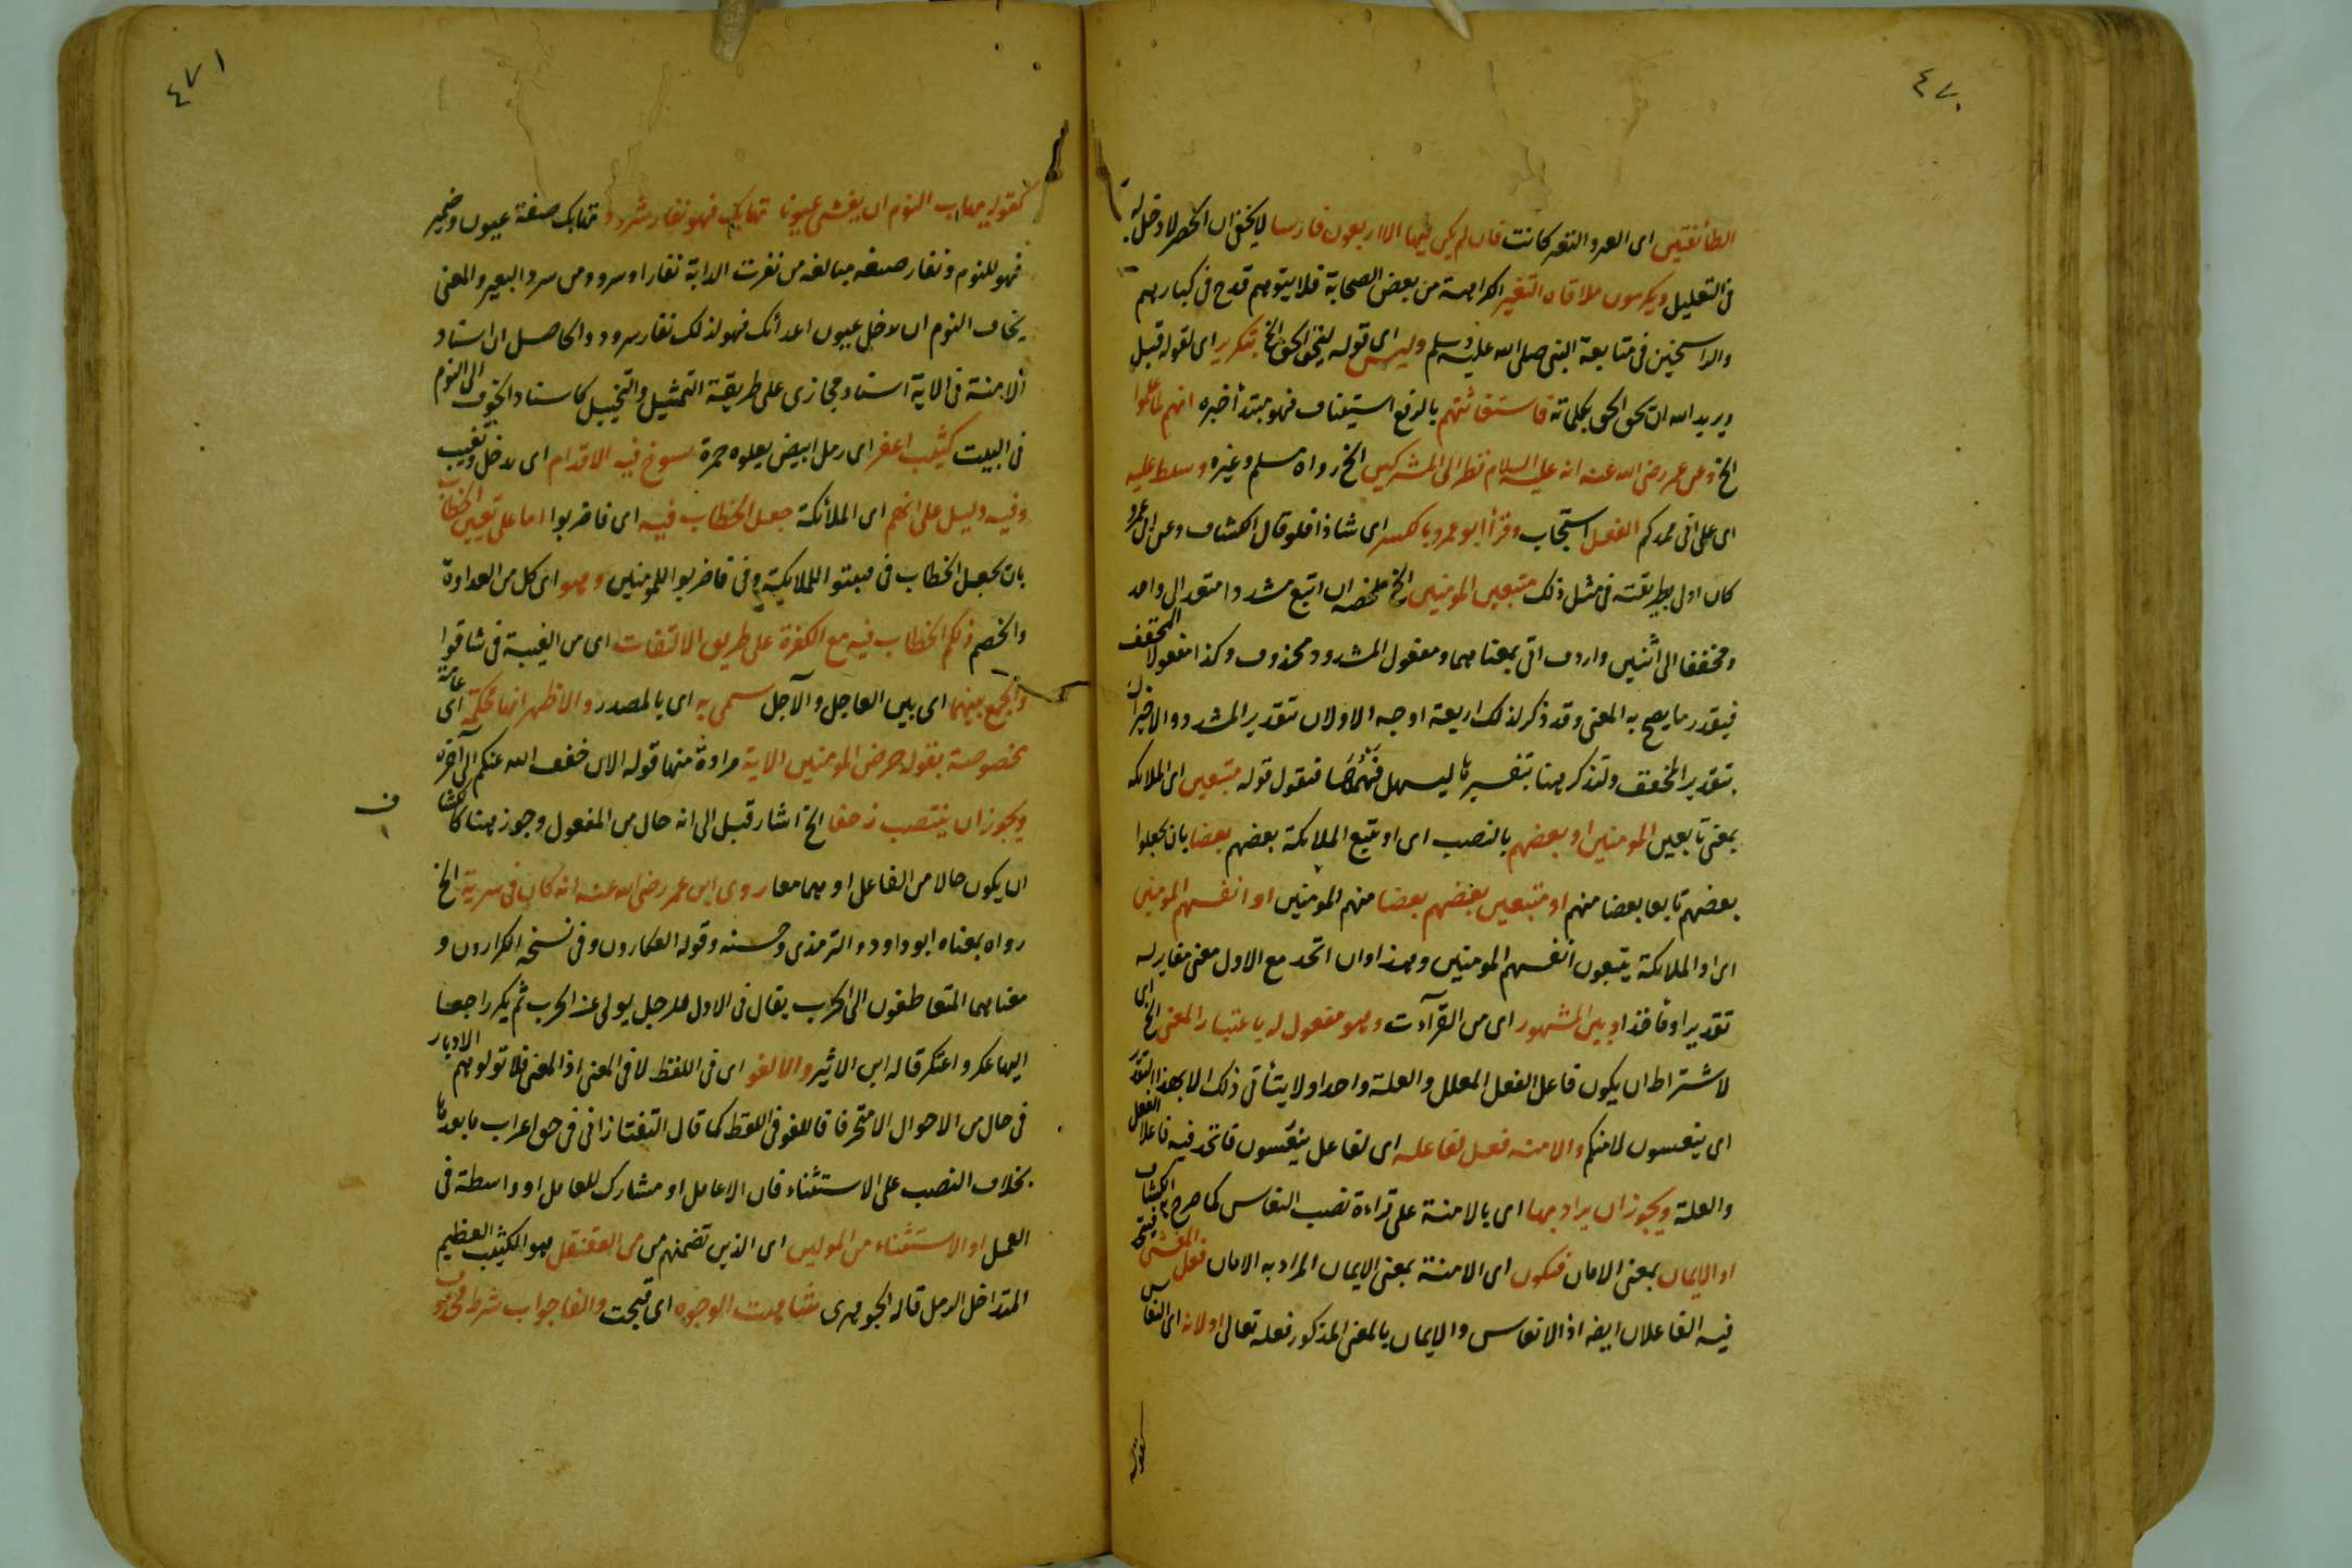 ٤٧٠
الطائفتين اى العير والنفير كانت فان لم يكن فيها الا اربعون فارسا لا يخفى ان الحصر لا دخل له
فى التعليل ويكرهون ملاقاة النفير الكراهة من بعض الصحابة فلا يتوهم قدح فى كبارهم
والراسخين فى متابعة النبى صلى الله عليه وسلم وليس اى قوله ليحق الحق الخ بتكرير اى لقوله قبل
ويريد الله ان يحق الحق بكلماته فاستغاثتهم بالرفع استيناف فهو مبتدأ خبره انهم لما علموا
الخ وعن عمر رضى الله عنه انه عليه السلام نظر الى المشركين الخ رواه مسلم وغيره وسلط عليه
اى على انى ممدكم الفعل استجاب وقرأ ابو عمرو بالكسر اى شاذا فلو قال كالكشاف وعن ابى عمرو
كان اولى بطريقته فى مثل ذلك متبعين المومنين الخ ملخصه ان اتبع مشددا متعد الى واحد
ومخففا الى اثنين واردف اتى بمعناهما ومفعول المشدد محذوف وكذا مفعولا المخفف
فيقدر ما يصح به المعنى وقد ذكر لذلك اربعة اوجه الاولان بتقدير المشدد والاخيران
بتقدير المخفف ولنذكرها بتفسيرها ليسهل فهمها فنقول قوله متبعين اى الملائكة
بمعنى تابعين المومنين او بعضهم بالنصب اى او تتبع الملائكة بعضهم بعضا بان يجعلوا
بعضهم تابعا بعضا منهم او متبعين بعضهم بعضا منهم المومنين او انفسهم المومنين
اى او الملائكة يتبعون انفسهم المومنين وهذا وان اتحد مع الاول معنى مغاير له
تقديرا ومأخذا وبين المشهور اى من القرآءات وهو مفعول له باعتبار المعنى الخ اى
لاشتراط ان يكون فاعل الفعل المعلل والعلة واحدا ولا يتأتى ذلك الا بهذا التقدير
اى ينعسون لامنكم والامنة فعل لفاعله اى لفاعل ينعسون فاتحد فيه فاعلا الفعل
والعلة ويجوز ان يراد بها اى بالامنة على قراءة نصب النعاس كما صرح به الكشاف
او الايمان بمعنى الامان فتكون اى الامنة بمعنى الايمان المراد به الامان فعل المغشى فيتحد
فيه الفاعلان ايضا اذ الانعاس والايمان بالمعنى المذكور فعله تعالى او لانه اى النعاس
كقوله
٤٧١
كقوله يهاب النوم ان يغشى عيونا تهابك فهو نفار شرود تهابك صفة عيون وضمير
فهو للنوم ونفار صيغه مبالغه من نفرت الدابة نفارا وشرود من شرد البعير والمعنى
يخاف النوم ان يدخل عيون اعدائك فهو لذلك نفار شرود والحاصل ان اسناد
الامنة فى الاية اسناد مجازى على طريقة التمثيل والتخييل كاسناد الخوف الى النوم
فى البيت كثيب اعفر اى رمل ابيض يعلوه حمرة تسوخ فيه الاقدام اى تدخل وتغيب
وفيه دليل على انهم اى الملائكة جعل الخطاب فيه اى فاضربوا اما على تغيير الخطاب
بان يجعل الخطاب فى فثبتوا للملائكة وفى فاضربوا للمومنين وهو اى كل من العداوة
والخصم ذلكم الخطاب فيه مع الكفرة على طريق الالتفات اى من الغيبة فى شاقوا
والجمع بينهما اى بين العاجل والآجل سمى به اى بالمصدر والاظهر انها محكمة اى عامة
مخصوصة بقوله حرض المومنين الاية مرادة منها قوله الان خفف الله عنكم الى آخره
ويجوز ان ينتصب زحفا الخ اشار قبل الى انه حال من المفعول وجوز هنا كالكشاف
ان يكون حالا من الفاعل او هما معا روى ابن عمر رضى الله عنه انه كان فى سرية الخ
رواه بمعناه ابو داود والترمذى وحسنه وقوله العكارون وفى نسخه الكرارون و
معناهما المتعاطفون الى الحرب يقال فى الاول للرجل يولى عند الحرب ثم يكر راجعا
اليها عكر واعتكر قاله ابن الاثير والا لغو اى فى اللفظ لا فى المعنى اذ المعنى فلا تولوهم الادبار
فى حال من الاحوال الا متحرفا فاللغو فى اللفظ كما قال التفتازانى فى حق اعراب ما بعدها
بخلاف النصب على الاستثناء فان الا عامل او مشارك للعامل او واسطة فى
العمل او الاستثناء من المولين اى الذين تضمنهم من من العقنقل هو الكثيب العظيم
المتداخل الرمل قاله الجوهرى شاهت الوجوه اى قبحت والفا جواب شرط محذوف
ف